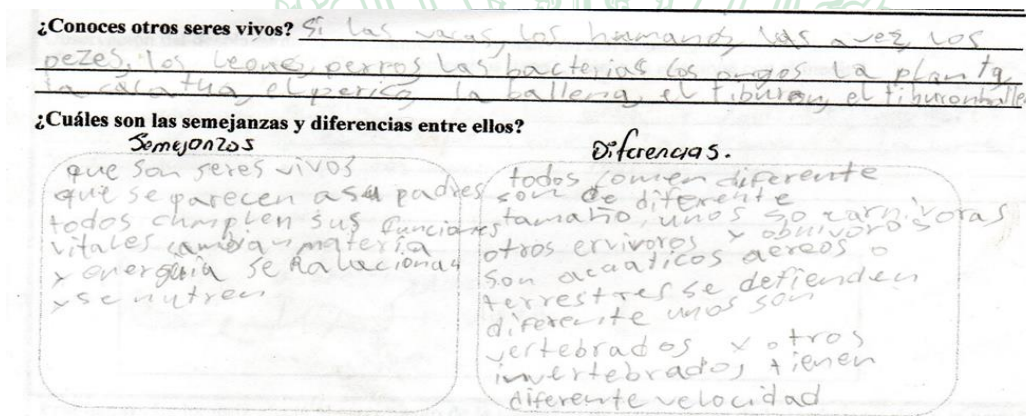 ¿Conoces otros seres vivos? Si las vacas, los humanos, las avez los
pezes, los leones, perros las bacterias los ongos la planta,
la cacatua, el perico la ballena, el tiburon, el tiburonballe
¿Cuáles son las semejanzas y diferencias entre ellos?
Semejanzas
que son seres vivos
que se parecen a su padres
todos cumplen sus funciones
vitales cambian materia
y energuia se
y se nutren
Diferencias.
todos comen diferente
son de diferente
tamaño, unos so carnivoras
otros ervivoros y obnivoros
son acuaticos aereos o
terrestres se defienden
diferente unos son
vertebrados y otros
invertebrados tienen
diferente velocidad